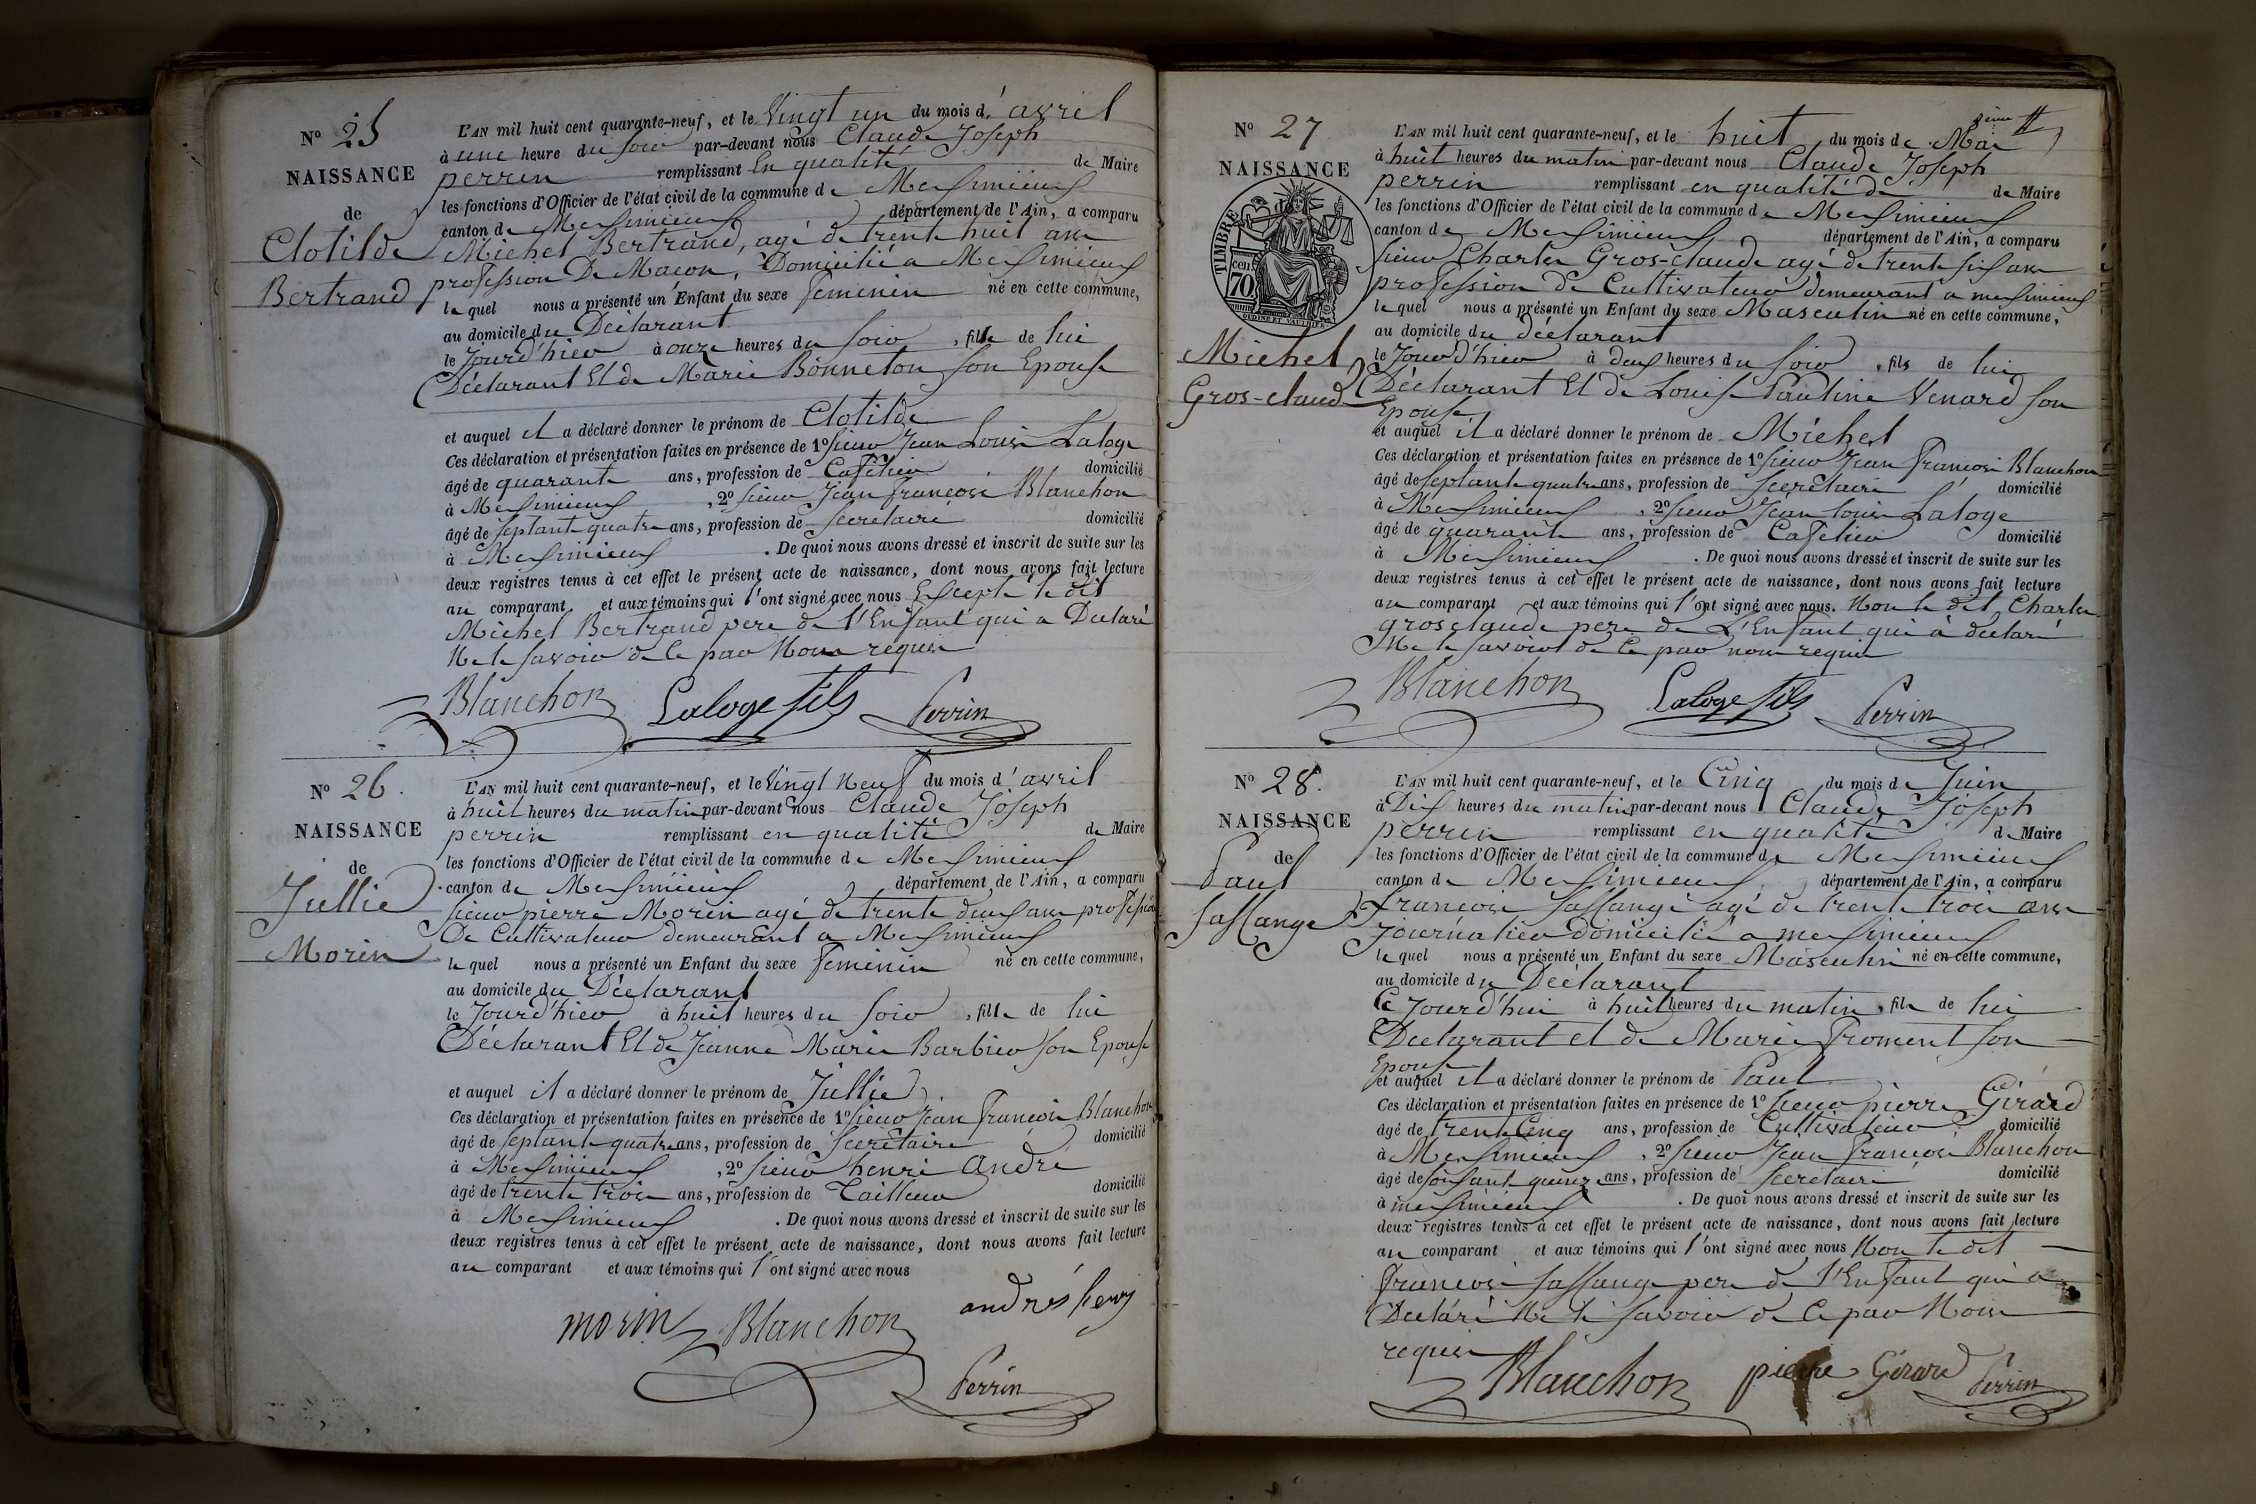 N° 25
NAISSANCE
de
Clotilde
Bertrand
L'AN mil huit cent quarante-neuf, et le Vingt un du mois d' avril
à une heure du soir par-devant nous Claude Joseph
perrin remplissant En qualité de Maire
les fonctions d'Officier de l'état civil de la commune de Messimieux
canton de Messimieux département de l'Ain, a comparu
Michel Bertrand, agé de trente huit ans
profession De Macon, Domicilié a Messimieux
le quel nous a présenté un Enfant du sexe feminin né en cette commune,
au domicile du Déclarant
le Jourd'hier à onze heures du soir, fille de lui
Déclarant Et de Marie Bonneton son Epouse
et auquel il a déclaré donner le prénom de Clotilde
Ces déclaration et présentation faites en présence de 1° sieur Jean Louis Laloge
âgé de quarante ans, profession de Cafetier domicilié
à Messimieux, 2° sieur Jean françois Blanchon
âgé de septante quatre ans, profession de secretaire domicilié
à Messimieux. De quoi nous avons dressé et inscrit de suite sur les
deux registres tenus à cet effet le présent acte de naissance, dont nous avons fait lecture
au comparant et aux témoins qui l'ont signé avec nous Excepté le dit
Michel Bertrand pere de l'Enfant qui a Déclaré
Ne le savoir de Ce par Nous requis
Blanchon Laloge fils Perrin
N° 26.
NAISSANCE
de
Jullie
Morin
L'AN mil huit cent quarante-neuf, et le Vingt Neuf du mois d' avril
à huit heures du matin par-devant nous Claude Joseph
perrin remplissant en qualité de Maire
les fonctions d'Officier de l'état civil de la commune de Messimieux
canton de Messimieux département de l'Ain, a comparu
sieur pierre Morin agé de trente deux ans profession
De Cultivateur demeurant a Messimieux
le quel nous a présenté un Enfant du sexe feminin né en cette commune,
au domicile du Déclarant
le Jourd'hier à huit heures du soir, fille de lui
Déclarant Et de Jeanne Marie Barbier son Epouse
et auquel il a déclaré donner le prénom de Jullie
Ces déclaration et présentation faites en présence de 1° sieur Jean françois Blanchon
âgé de septante quatre ans, profession de Secretaire domicilié
à Messimieux, 2° sieur henri André
âgé de trente trois ans, profession de Tailleur domicilié
à Messimieux. De quoi nous avons dressé et inscrit de suite sur les
deux registres tenus à cet effet le présent acte de naissance, dont nous avons fait lecture
au comparant et aux témoins qui l'ont signé avec nous
morin Blanchon andrés henrj
Perrin
N° 27
NAISSANCE
de
TIMBRE
cen
70
Michel
Gros-claude
L'AN mil huit cent quarante-neuf, et le huit du mois de Mai
à huit heures du matin par-devant nous Claude Joseph
perrin remplissant en qualité de de Maire
les fonctions d'Officier de l'état civil de la commune de Messimieux
canton de Messimieux département de l'Ain, a comparu
sieur Charles Gros-claude agé de trente six ans
profession de Cultivateur demeurant a messimieux
le quel nous a présenté un Enfant du sexe Masculin né en cette commune,
au domicile du déclarant
le Jourd'hier à deux heures du soir, fils de lui
Déclarant Et de Louise Pauline Venard son
Epouse
et auquel il a déclaré donner le prénom de Michel
Ces déclaration et présentation faites en présence de 1° sieur Jean françois Blanchon
âgé de septante quatre ans, profession de Secretaire domicilié
à Messimieux, 2° sieur Jean Louis Laloge
âgé de quarante ans, profession de Cafetier domicilié
à Messimieux. De quoi nous avons dressé et inscrit de suite sur les
deux registres tenus à cet effet le présent acte de naissance, dont nous avons fait lecture
au comparant et aux témoins qui l'ont signé avec nous. Non le dit Charles
grosclaude pere de L'Enfant qui à déclaré
Ne le savoir de Ce par nous requis
Blanchon Laloge fils Perrin
N° 28.
NAISSANCE
de
Paul
Sassange
L'AN mil huit cent quarante-neuf, et le Cinq du mois de Juin
à Dix heures du matin par-devant nous Claude Joseph
perrin remplissant en qualité de Maire
les fonctions d'Officier de l'état civil de la commune de Messimieux
canton de Messimieux département de l'Ain, a comparu
francois Sassange agé de trente trois ans
Journalier domicilié a messimieux
le quel nous a présenté un Enfant du sexe Masculin né en cette commune,
au domicile du Déclarant
Ce Jourd'hui à huit heures du matin, fils de lui
Declarant et de Marie Froment son
Epouse
et auquel il a déclaré donner le prénom de Paul
Ces déclaration et présentation faites en présence de 1° sieur pierre Gérard
âgé de trente Cinq ans, profession de Cultivateur domicilié
à Messimieux, 2° sieur Jean françois Blanchon
âgé de soisante quinze ans, profession de Secretaire domicilié
à messimieux. De quoi nous avons dressé et inscrit de suite sur les
deux registres tenus à cet effet le présent acte de naissance, dont nous avons fait lecture
au comparant et aux témoins qui l'ont signé avec nous Non le dit
françois Sassange pere de l'Enfant qui a
Declaré Ne le savoir de Ce par Nous
requis
Blanchon pierre Gérard Perrin